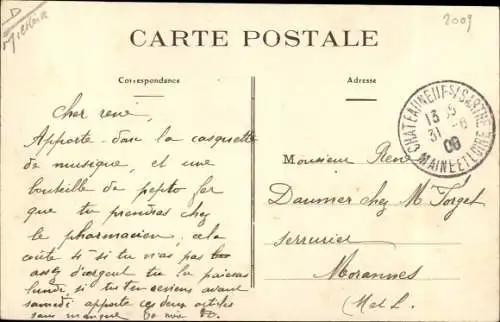 2009
CARTE POSTALE
Correspondance
Adresse
CHATEAUNEUF-S/SARTHE
13 5
31 -8
08
MAINE ET LOIRE
Cher rené,
Apporte-donc la casquette
de musique, et une
bouteille de pepto fer
que tu prendras chez
le pharmacien, cela
coûte 5f si tu n'as pas
assez d'argent tu la paieras
lundi, si tu t'en venais avant
samedi apporte ces deux articles
sans manquer
Monsieur René
Daumer chez Mr Forget
serrurier
Morannes
(M et L.